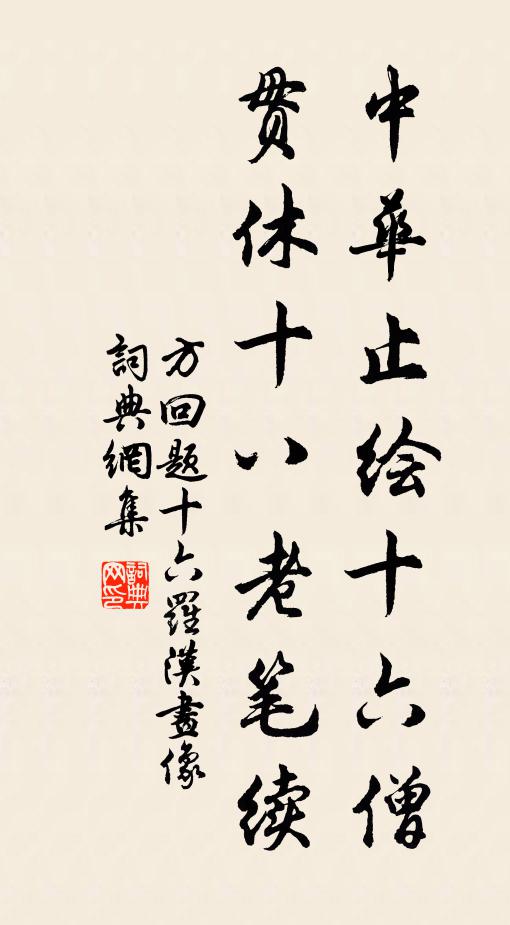 中華止绘十六僧
贯休十八老笔续
方回题十六羅漢畫像
詞典網集
詞典网印